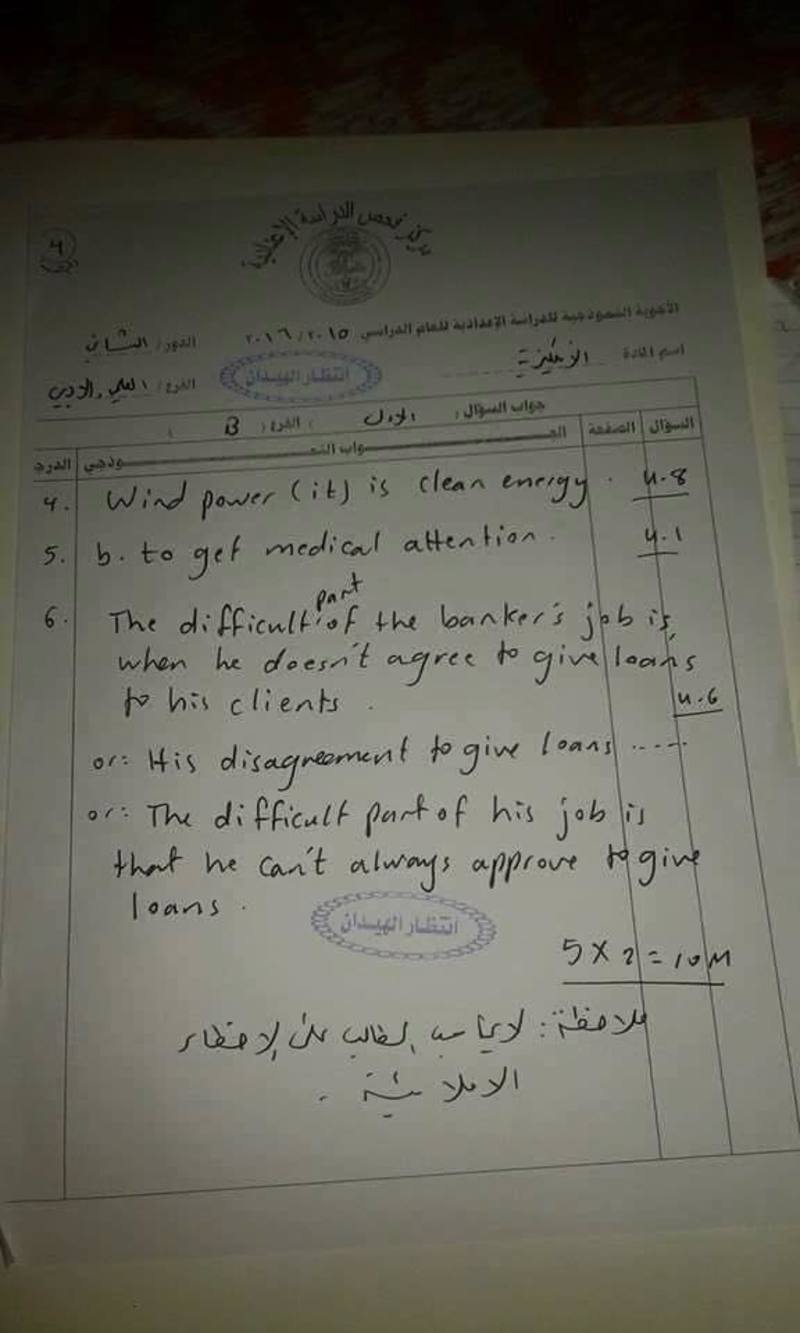 مركز فحص الدراسة الإعدادية
الأجوبة النموذجية للدراسة الإعدادية للعام الدراسي ٢٠١٦/٢٠١٥ الدور/ الثاني
اسم المادة الانكليزية
انتظار الهيدان
الفرع/ العلمي والادبي
جواب السؤال/ الاول / الفرع/ B
السؤال الصفحة الجــواب النمــوذجي الدرجة
4. Wind power (it) is clean energy. U.8
5. b. to get medical attention. U.1
6. The difficult part of the banker's job is
when he doesn't agree to give loans
to his clients. U.6
or: His disagreement to give loans ....
or: The difficult part of his job is
that he can't always approve to give
loans.
انتظار الهيدان
5 x 2 = 10 M
ملاحظة: لا يحاسب الطالب على الاخطاء
الاملائية.